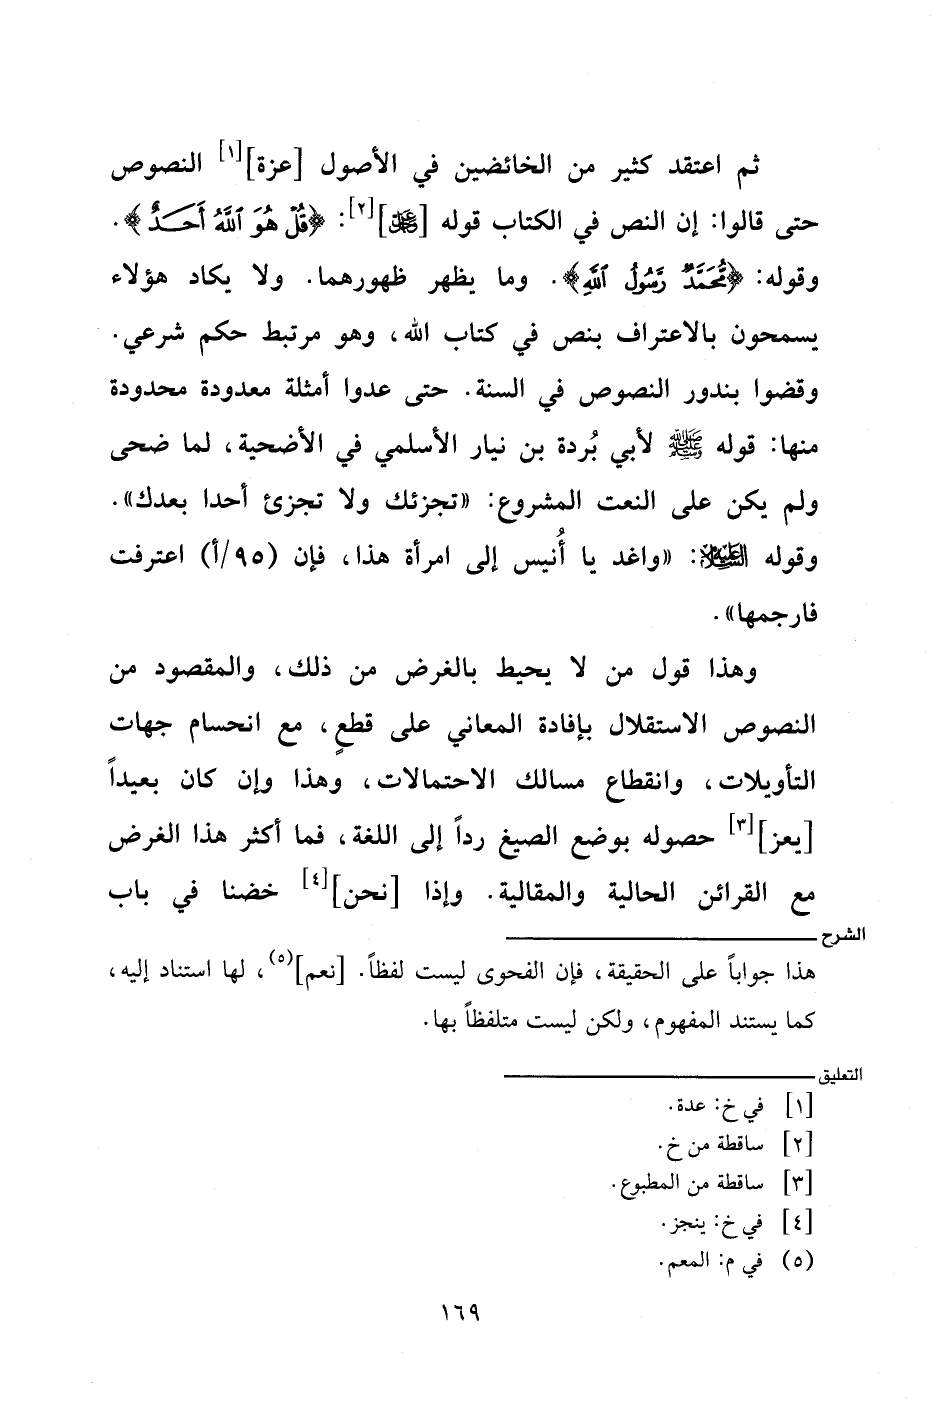 ثم اعتقد كثير من الخائضين في الأصول [عزة][١] النصوص
حتى قالوا: إن النص في الكتاب قوله [ﷻ][٢]: ﴿قُلْ هُوَ ٱللَّهُ أَحَـدٌ﴾.
وقوله: ﴿مُّحَمَّدٌ رَّسُولُ ٱللَّهِ﴾. وما يظهر ظهورهما. ولا يكاد هؤلاء
يسمحون بالاعتراف بنص في كتاب الله، وهو مرتبط حكم شرعي.
وقضوا بندور النصوص في السنة. حتى عدوا أمثلة معدودة محدودة
منها: قوله ﷺ لأبي بُردة بن نيار الأسلمي في الأضحية، لما ضحى
ولم يكن على النعت المشروع: «تجزئك ولا تجزئ أحدا بعدك».
وقوله عليه السلام: «واغد يا أُنيس إلى امرأة هذا، فإن (٩٥/أ) اعترفت
فارجمها».
وهذا قول من لا يحيط بالغرض من ذلك، والمقصود من
النصوص الاستقلال بإفادة المعاني على قطعٍ، مع انحسام جهات
التأويلات، وانقطاع مسالك الاحتمالات، وهذا وإن كان بعيداً
[يعز][٣] حصوله بوضع الصيغ رداً إلى اللغة، فما أكثر هذا الغرض
مع القرائن الحالية والمقالية. وإذا [نحن][٤] خضنا في باب
الشرح
هذا جواباً على الحقيقة، فإن الفحوى ليست لفظاً. [نعم](٥)، لها استناد إليه،
كما يستند المفهوم، ولكن ليست متلفظاً بها.
التعليق
[١] في خ: عدة.
[٢] ساقطة من خ.
[٣] ساقطة من المطبوع.
[٤] في خ: ينجز.
(٥) في م: المعم.
١٦٩